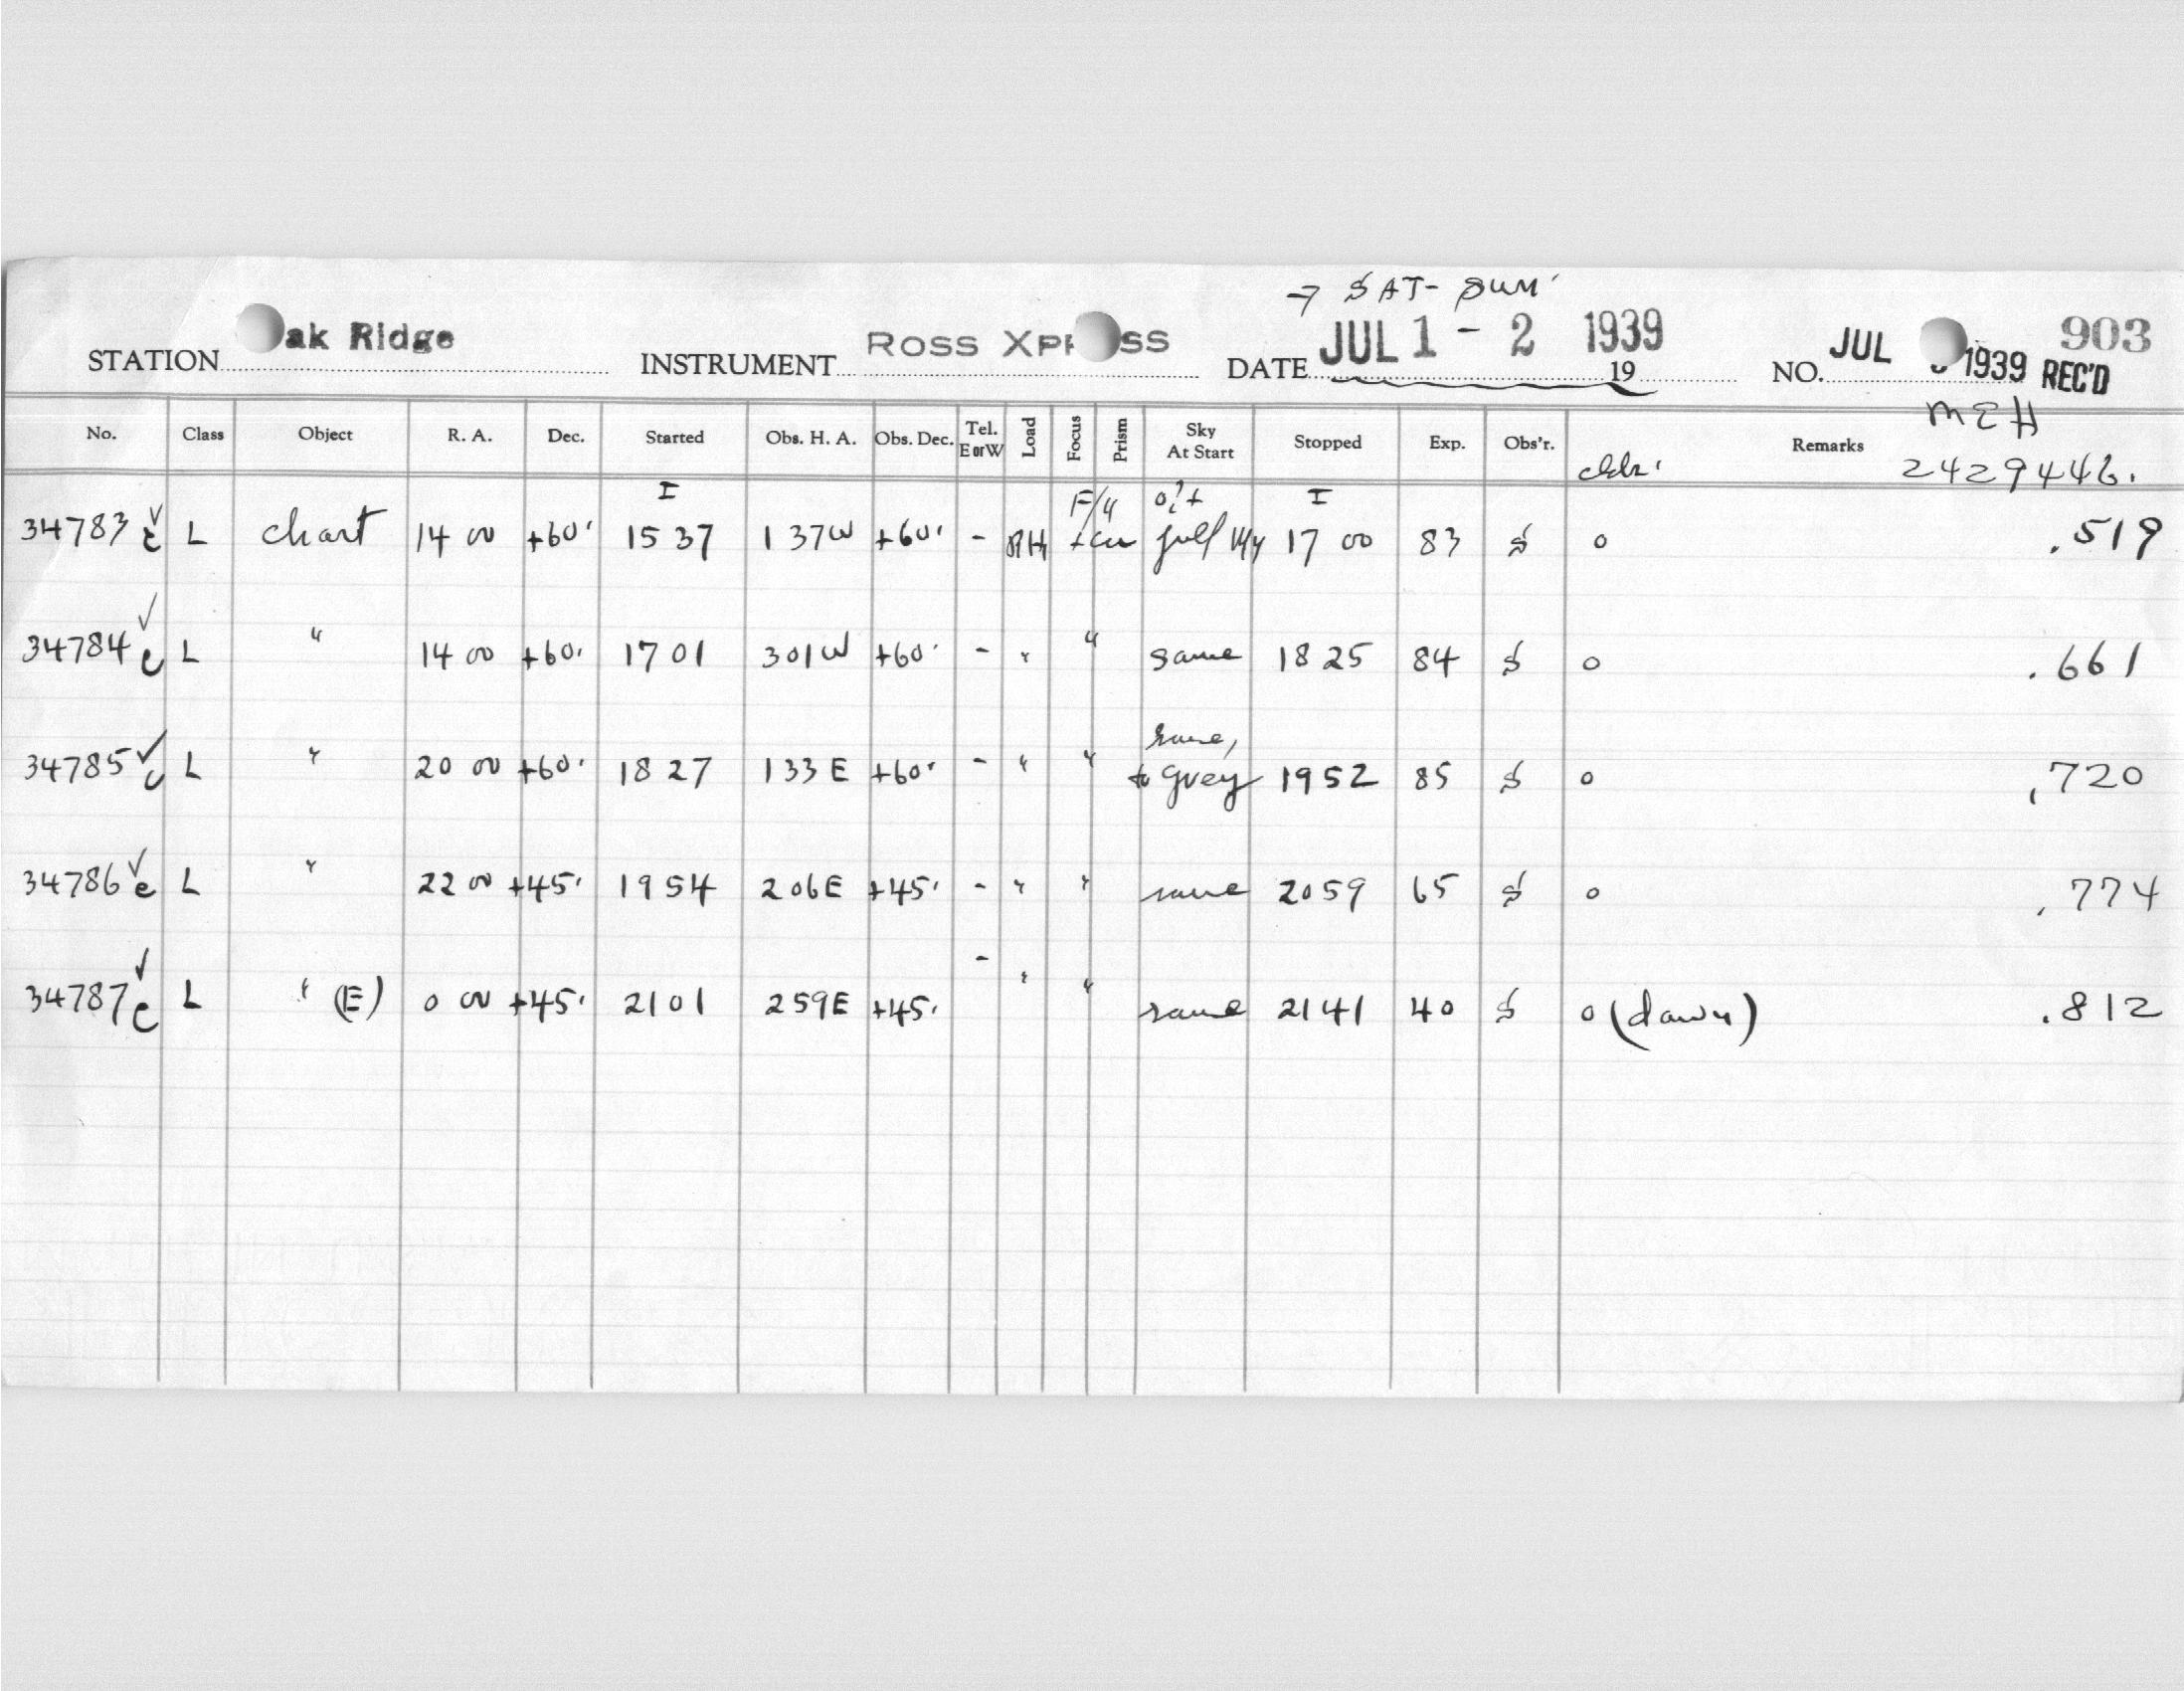 → SAT - SUN
STATION Oak Ridge INSTRUMENT ROSS XPRESS DATE JUL 1 - 2 1939 19 NO. JUL 1939 REC'D 903
MEH
No. Class Object R. A. Dec. Started Obs. H. A. Obs. Dec. Tel. E or W Load Focus Prism Sky At Start Stopped Exp. Obs'r. Remarks 2429446.
I F/4 I
34783 c ✓ L chart 14 00 +60 15 37 1 37 W +60 - RH full 17 00 83 S o .519
34784 c ✓ L " 14 00 +60 17 01 3 01 W +60 - " " same 18 25 84 S o .661
34785 c ✓ L " 20 00 +60 18 27 1 33 E +60 - " " same, to grey 19 52 85 S o .720
34786 c ✓ L " 22 00 +45 19 54 2 06 E +45 - " " same 20 59 65 S o .774
34787 c ✓ L " (E) 0 00 +45 21 01 2 59 E +45 - " " same 21 41 40 S o (dawn) .812